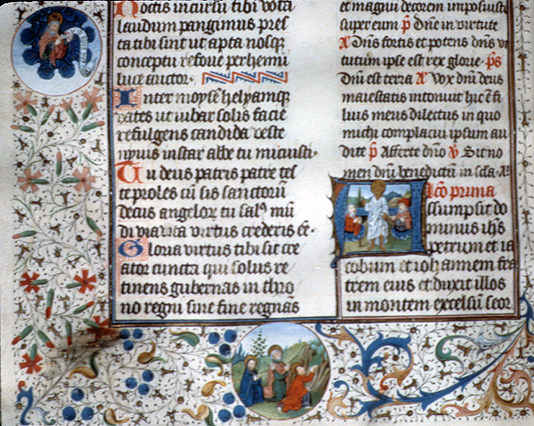 Noctis incutit tibi vota
laudum pangimus pres
ta tibi sint ut apta nosq3
conceptu refoue perhenni
luce auctor.
Inter moysē helyamq3
vates ut iubar solis facie
refulgens candida veste
nyuis instar albe tu micuisti.
Tu deus patris patre tes
te proles cū sis sanctorū
decus angeloꝝ tu salꝰ mū
di via vita virtus crederis es.
Gloria virtus tibi sit cre
ator cuncta qui solus re
tinens gubernas in thro
no regni sine fine regnās
et magni decorem impoſuiſti
super eum p̄ Dn̄e in virtute
Dn̄s fortis et potens dn̄s
tutum ipse est rex glorie. pͣs
Dn̄i est terra Vox dn̄i deus
maiestatis intonuit hic ē fi
lius meus dilectus in quo
michi complacui ipsum au
dite p̄ Afferte dn̄o Sit no
men dn̄i benedictū in scla.
scd̄ pm̄a
Assumpsit do
minus ihs̄
petrum et ia
cobum et iohannem fra
trem eius et duxit illos
in montem excelsū seor